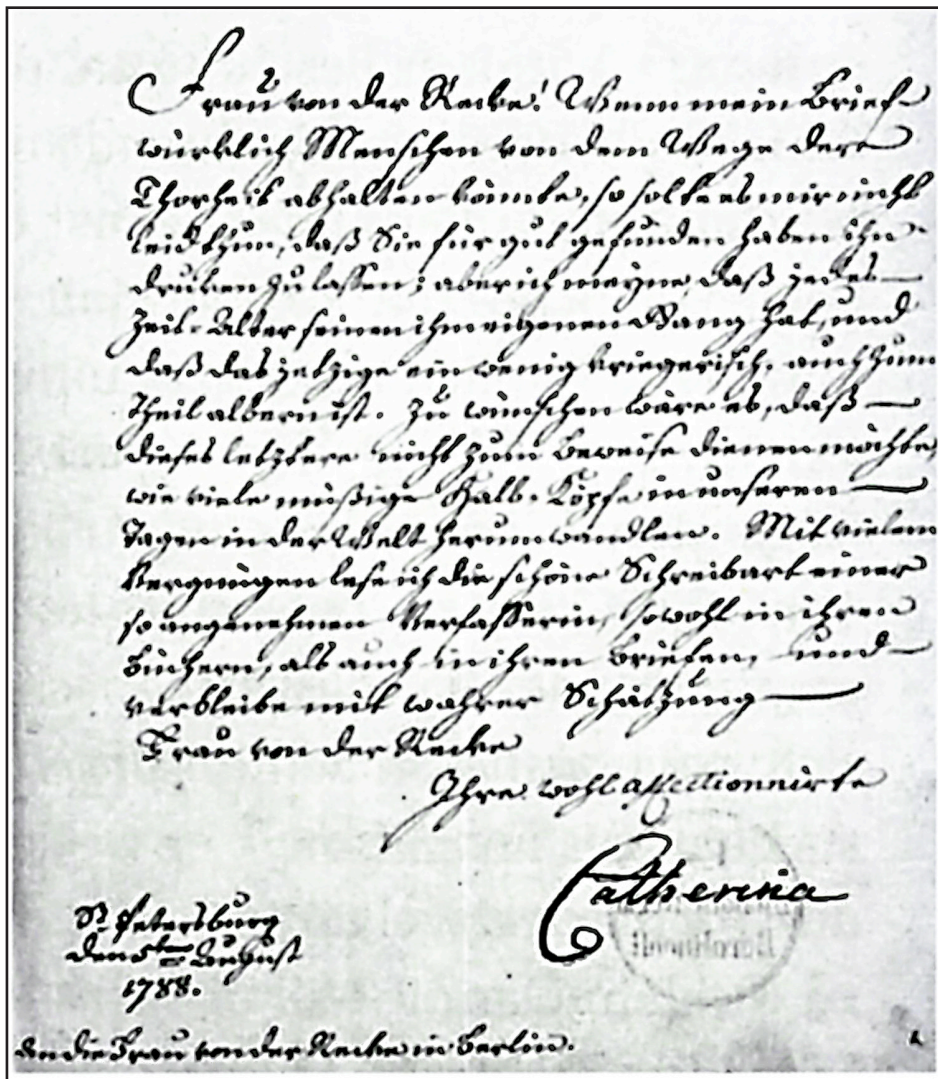 Frau von der Recke! Wenn mein Brief
würklich Menschen von dem Wege der
Thorheit abhalten könnte, so solte es mir nicht
leid thun, daß Sie für gut gefunden haben ihn
druken zu lassen; aber ich meyne, daß jedes
Zeit-Alter seinen ihm eigenen Gang hat, und
daß das jetzige ein wenig kriegerisch, auch zum
Theil albern ist. Zu wünschen wäre es, daß
dieses letztere nicht zum Beweise dienen möchte,
wie viele müßige Halb-Köpfe in unseren
Tagen in der Welt herumwandlen. Mit vielem
Vergnügen lese ich die schöne Schreibart einer
so angenehmen Verfasserin, sowohl in ihren
Büchern, als auch in ihren Briefen, und
verbleibe mit wahrer Schätzung
Frau von der Recke
Ihre wohl affectionnirte
Catherina
St Petersburg
den 5ten August
1788.
An die Frau von der Recke in Berlin.